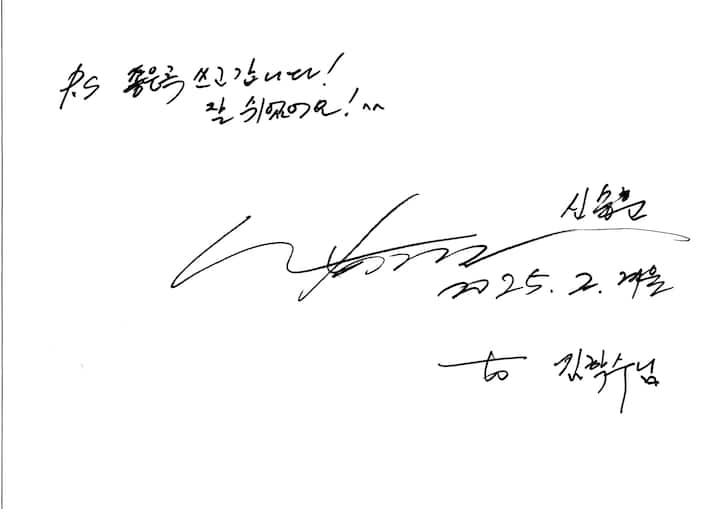 P.S 좋은곡 쓰고 갑니다!
잘 쉬었어요!^^
신
2025. 2. 겨울
to 김학수님